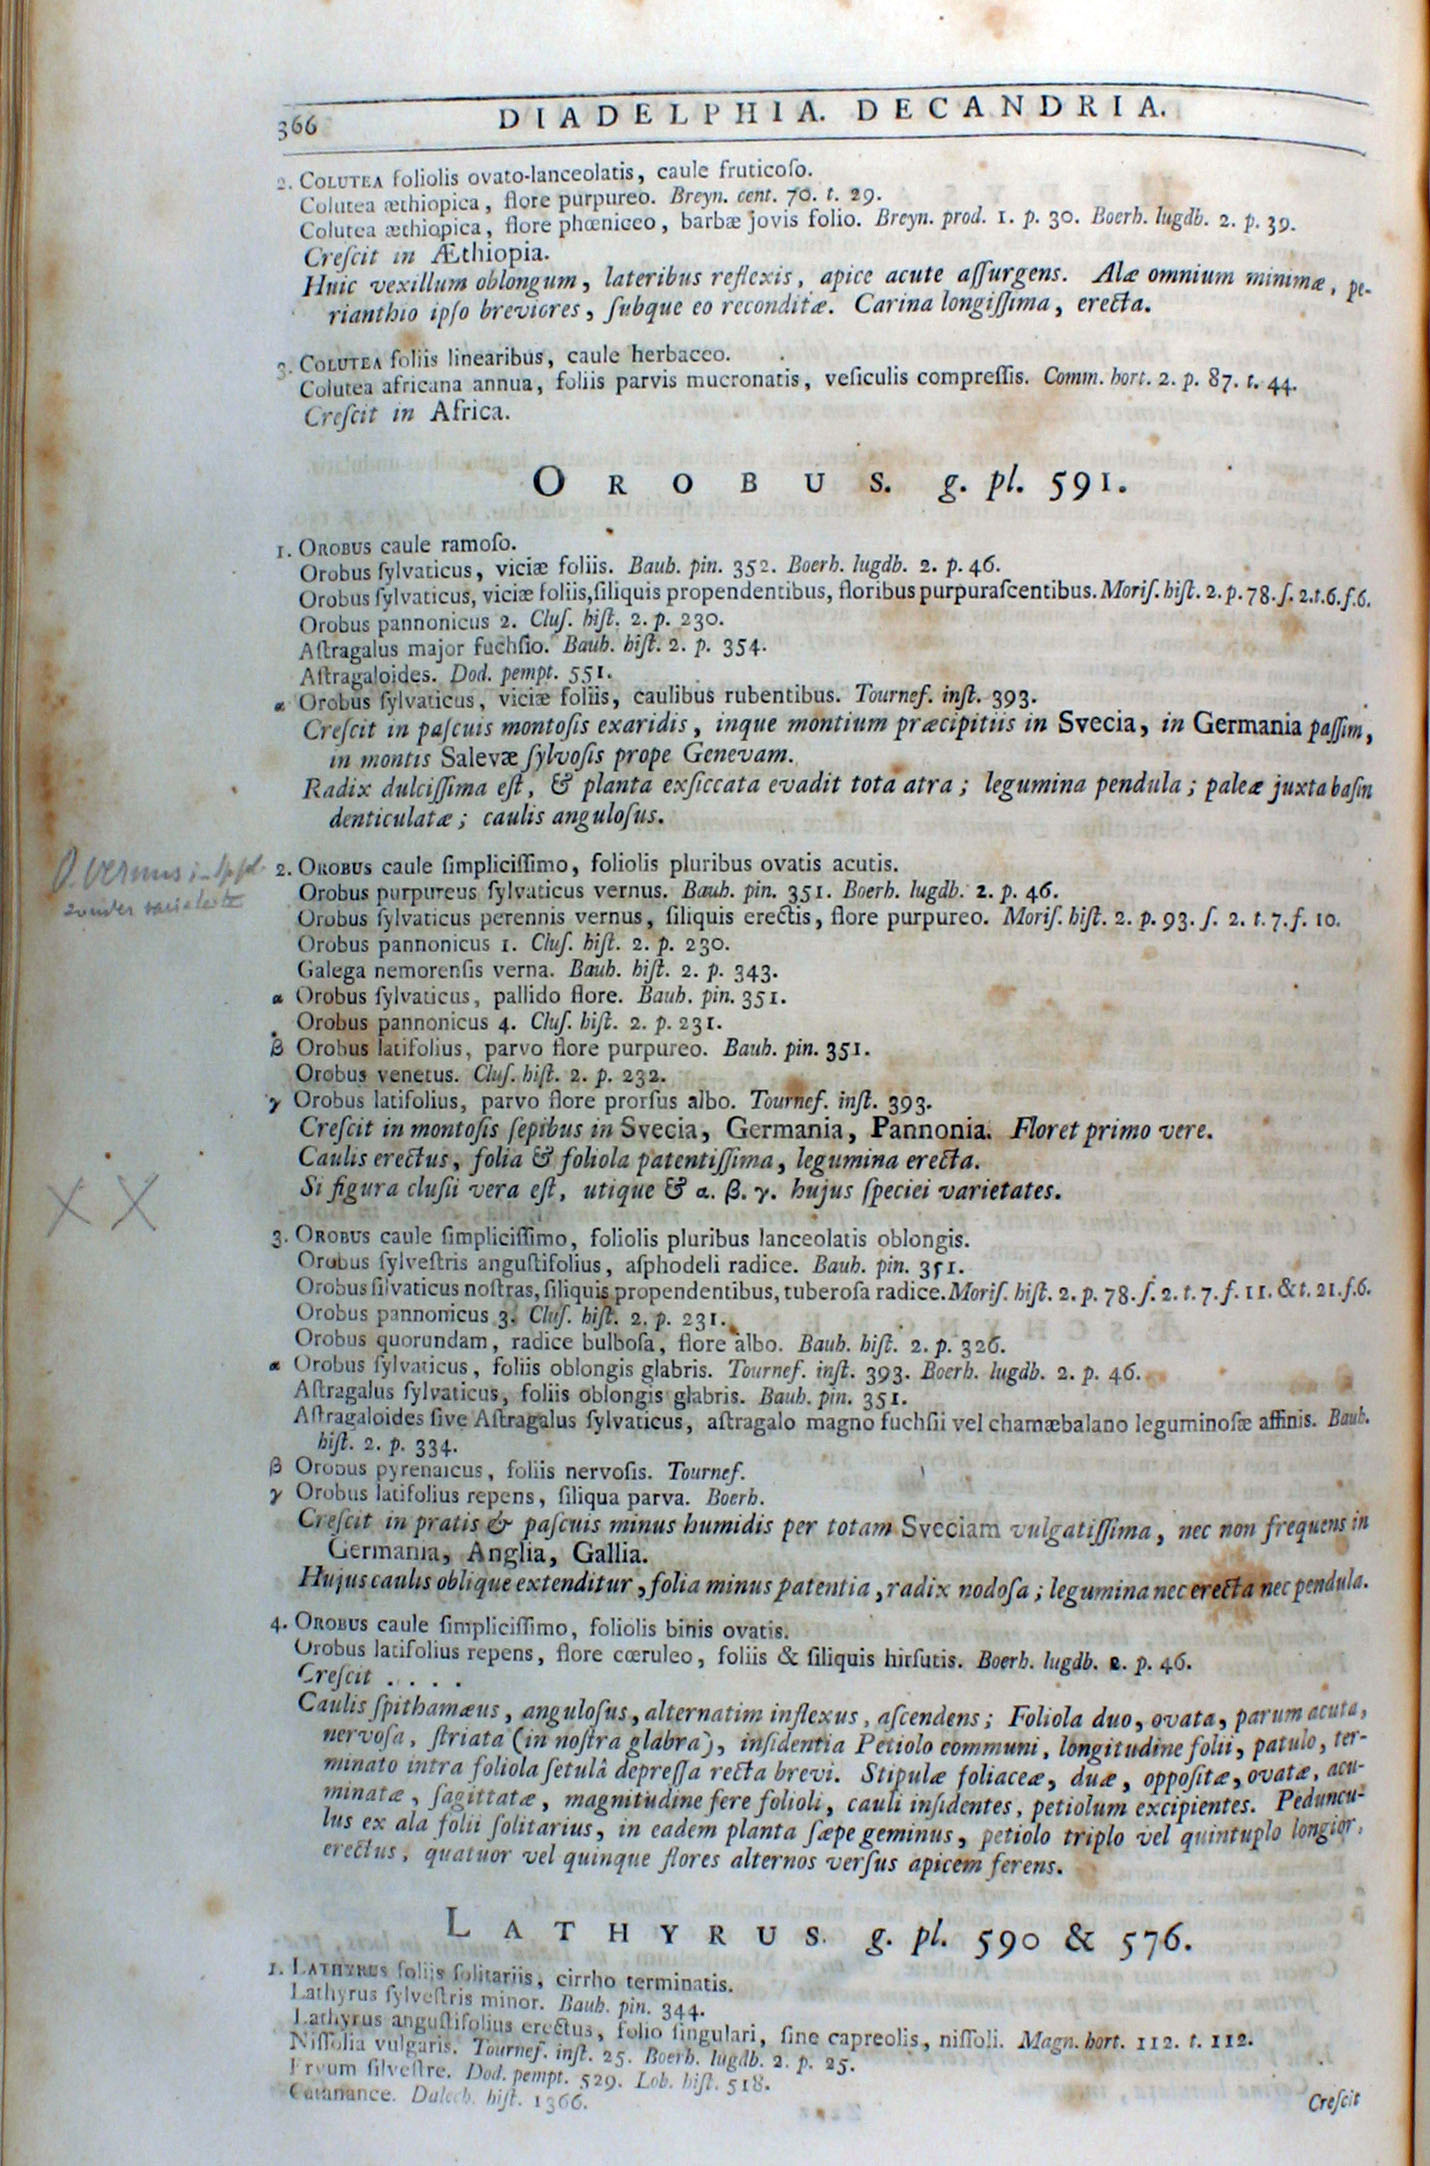 366
DIADELPHIA. DECANDRIA.
2. COLUTEA foliolis ovato-lanceolatis, caule fruticoſo.
Colutea æthiopica, flore purpureo. Breyn. cent. 70. t. 29.
Colutea æthiopica, flore phœniceo, barbæ jovis folio. Breyn. prod. 1. p. 30. Boerh. lugdb. 2. p. 39.
Creſcit in Æthiopia.
Huic vexillum oblongum, lateribus reflexis, apice acute aſſurgens. Alæ omnium minimæ, pe-
rianthio ipſo breviores, ſubque eo reconditæ. Carina longiſſima, erecta.
3. COLUTEA foliis linearibus, caule herbaceo.
Colutea africana annua, foliis parvis mucronatis, veſiculis compreſſis. Comm. hort. 2. p. 87. t. 44.
Creſcit in Africa.
OROBUS. g. pl. 591.
1. OROBUS caule ramoſo.
Orobus ſylvaticus, viciæ foliis. Bauh. pin. 352. Boerh. lugdb. 2. p. 46.
Orobus ſylvaticus, viciæ foliis, ſiliquis propendentibus, floribus purpuraſcentibus. Moriſ. hiſt. 2. p. 78. ſ. 2. t. 6. f. 6.
Orobus pannonicus 2. Cluſ. hiſt. 2. p. 230.
Aſtragalus major fuchſio. Bauh. hiſt. 2. p. 354.
Aſtragaloides. Dod. pempt. 551.
α Orobus ſylvaticus, viciæ foliis, caulibus rubentibus. Tournef. inſt. 393.
Creſcit in paſcuis montoſis exaridis, inque montium præcipitiis in Svecia, in Germania paſſim,
in montis Salevæ ſylvoſis prope Genevam.
Radix dulciſſima eſt, & planta exſiccata evadit tota atra; legumina pendula; paleæ juxta baſin
denticulatæ; caulis anguloſus.
O. vernus
2. OROBUS caule ſimpliciſſimo, foliolis pluribus ovatis acutis.
Orobus purpureus ſylvaticus vernus. Bauh. pin. 351. Boerh. lugdb. 2. p. 46.
Orobus ſylvaticus perennis vernus, ſiliquis erectis, flore purpureo. Moriſ. hiſt. 2. p. 93. ſ. 2. t. 7. f. 10.
Orobus pannonicus 1. Cluſ. hiſt. 2. p. 230.
Galega nemorenſis verna. Bauh. hiſt. 2. p. 343.
α Orobus ſylvaticus, pallido flore. Bauh. pin. 351.
Orobus pannonicus 4. Cluſ. hiſt. 2. p. 231.
β Orobus latifolius, parvo flore purpureo. Bauh. pin. 351.
Orobus venetus. Cluſ. hiſt. 2. p. 232.
γ Orobus latifolius, parvo flore prorſus albo. Tournef. inſt. 393.
Creſcit in montoſis ſepibus in Svecia, Germania, Pannonia. Floret primo vere.
Caulis erectus, folia & foliola patentiſſima, legumina erecta.
Si figura cluſii vera eſt, utique & α. β. γ. hujus ſpeciei varietates.
X X
3. OROBUS caule ſimpliciſſimo, foliolis pluribus lanceolatis oblongis.
Orobus ſylveſtris anguſtifolius, aſphodeli radice. Bauh. pin. 351.
Orobus ſilvaticus noſtras, ſiliquis propendentibus, tuberoſa radice. Moriſ. hiſt. 2. p. 78. ſ. 2. t. 7. f. 11. & t. 21. f. 6.
Orobus pannonicus 3. Cluſ. hiſt. 2. p. 231.
Orobus quorundam, radice bulboſa, flore albo. Bauh. hiſt. 2. p. 326.
α Orobus ſylvaticus, foliis oblongis glabris. Tournef. inſt. 393. Boerh. lugdb. 2. p. 46.
Aſtragalus ſylvaticus, foliis oblongis glabris. Bauh. pin. 351.
Aſtragaloides ſive Aſtragalus ſylvaticus, aſtragalo magno fuchſii vel chamæbalano leguminoſæ affinis. Bauh.
hiſt. 2. p. 334.
β Orobus pyrenaicus, foliis nervoſis. Tournef.
γ Orobus latifolius repens, ſiliqua parva. Boerh.
Creſcit in pratis & paſcuis minus humidis per totam Sveciam vulgatiſſima, nec non frequens in
Germania, Anglia, Gallia.
Hujus caulis oblique extenditur, folia minus patentia, radix nodoſa; legumina nec erecta nec pendula.
4. OROBUS caule ſimpliciſſimo, foliolis binis ovatis.
Orobus latifolius repens, flore cœruleo, foliis & ſiliquis hirſutis. Boerh. lugdb. 2. p. 46.
Creſcit . . . .
Caulis ſpithamæus, anguloſus, alternatim inflexus, aſcendens; Foliola duo, ovata, parum acuta,
nervoſa, ſtriata (in noſtra glabra), inſidentia Petiolo communi, longitudine folii, patulo, ter-
minato intra foliola ſetulâ depreſſa recta brevi. Stipulæ foliaceæ, duæ, oppoſitæ, ovatæ, acu-
minatæ, ſagittatæ, magnitudine fere folioli, cauli inſidentes, petiolum excipientes. Peduncu-
lus ex ala folii ſolitarius, in eadem planta ſæpe geminus, petiolo triplo vel quintuplo longior,
erectus, quatuor vel quinque flores alternos verſus apicem ferens.
LATHYRUS. g. pl. 590 & 576.
1. LATHYRUS foliis ſolitariis, cirrho terminatis.
Lathyrus ſylveſtris minor. Bauh. pin. 344.
Lathyrus anguſtifolius erectus, folio ſingulari, ſine capreolis, niſſoli. Magn. hort. 112. t. 112.
Niſſolia vulgaris. Tournef. inſt. 25. Boerh. lugdb. 2. p. 25.
Ervum ſilveſtre. Dod. pempt. 529. Lob. hiſt. 518.
Catanance. Dalech. hiſt. 1366.
Creſcit